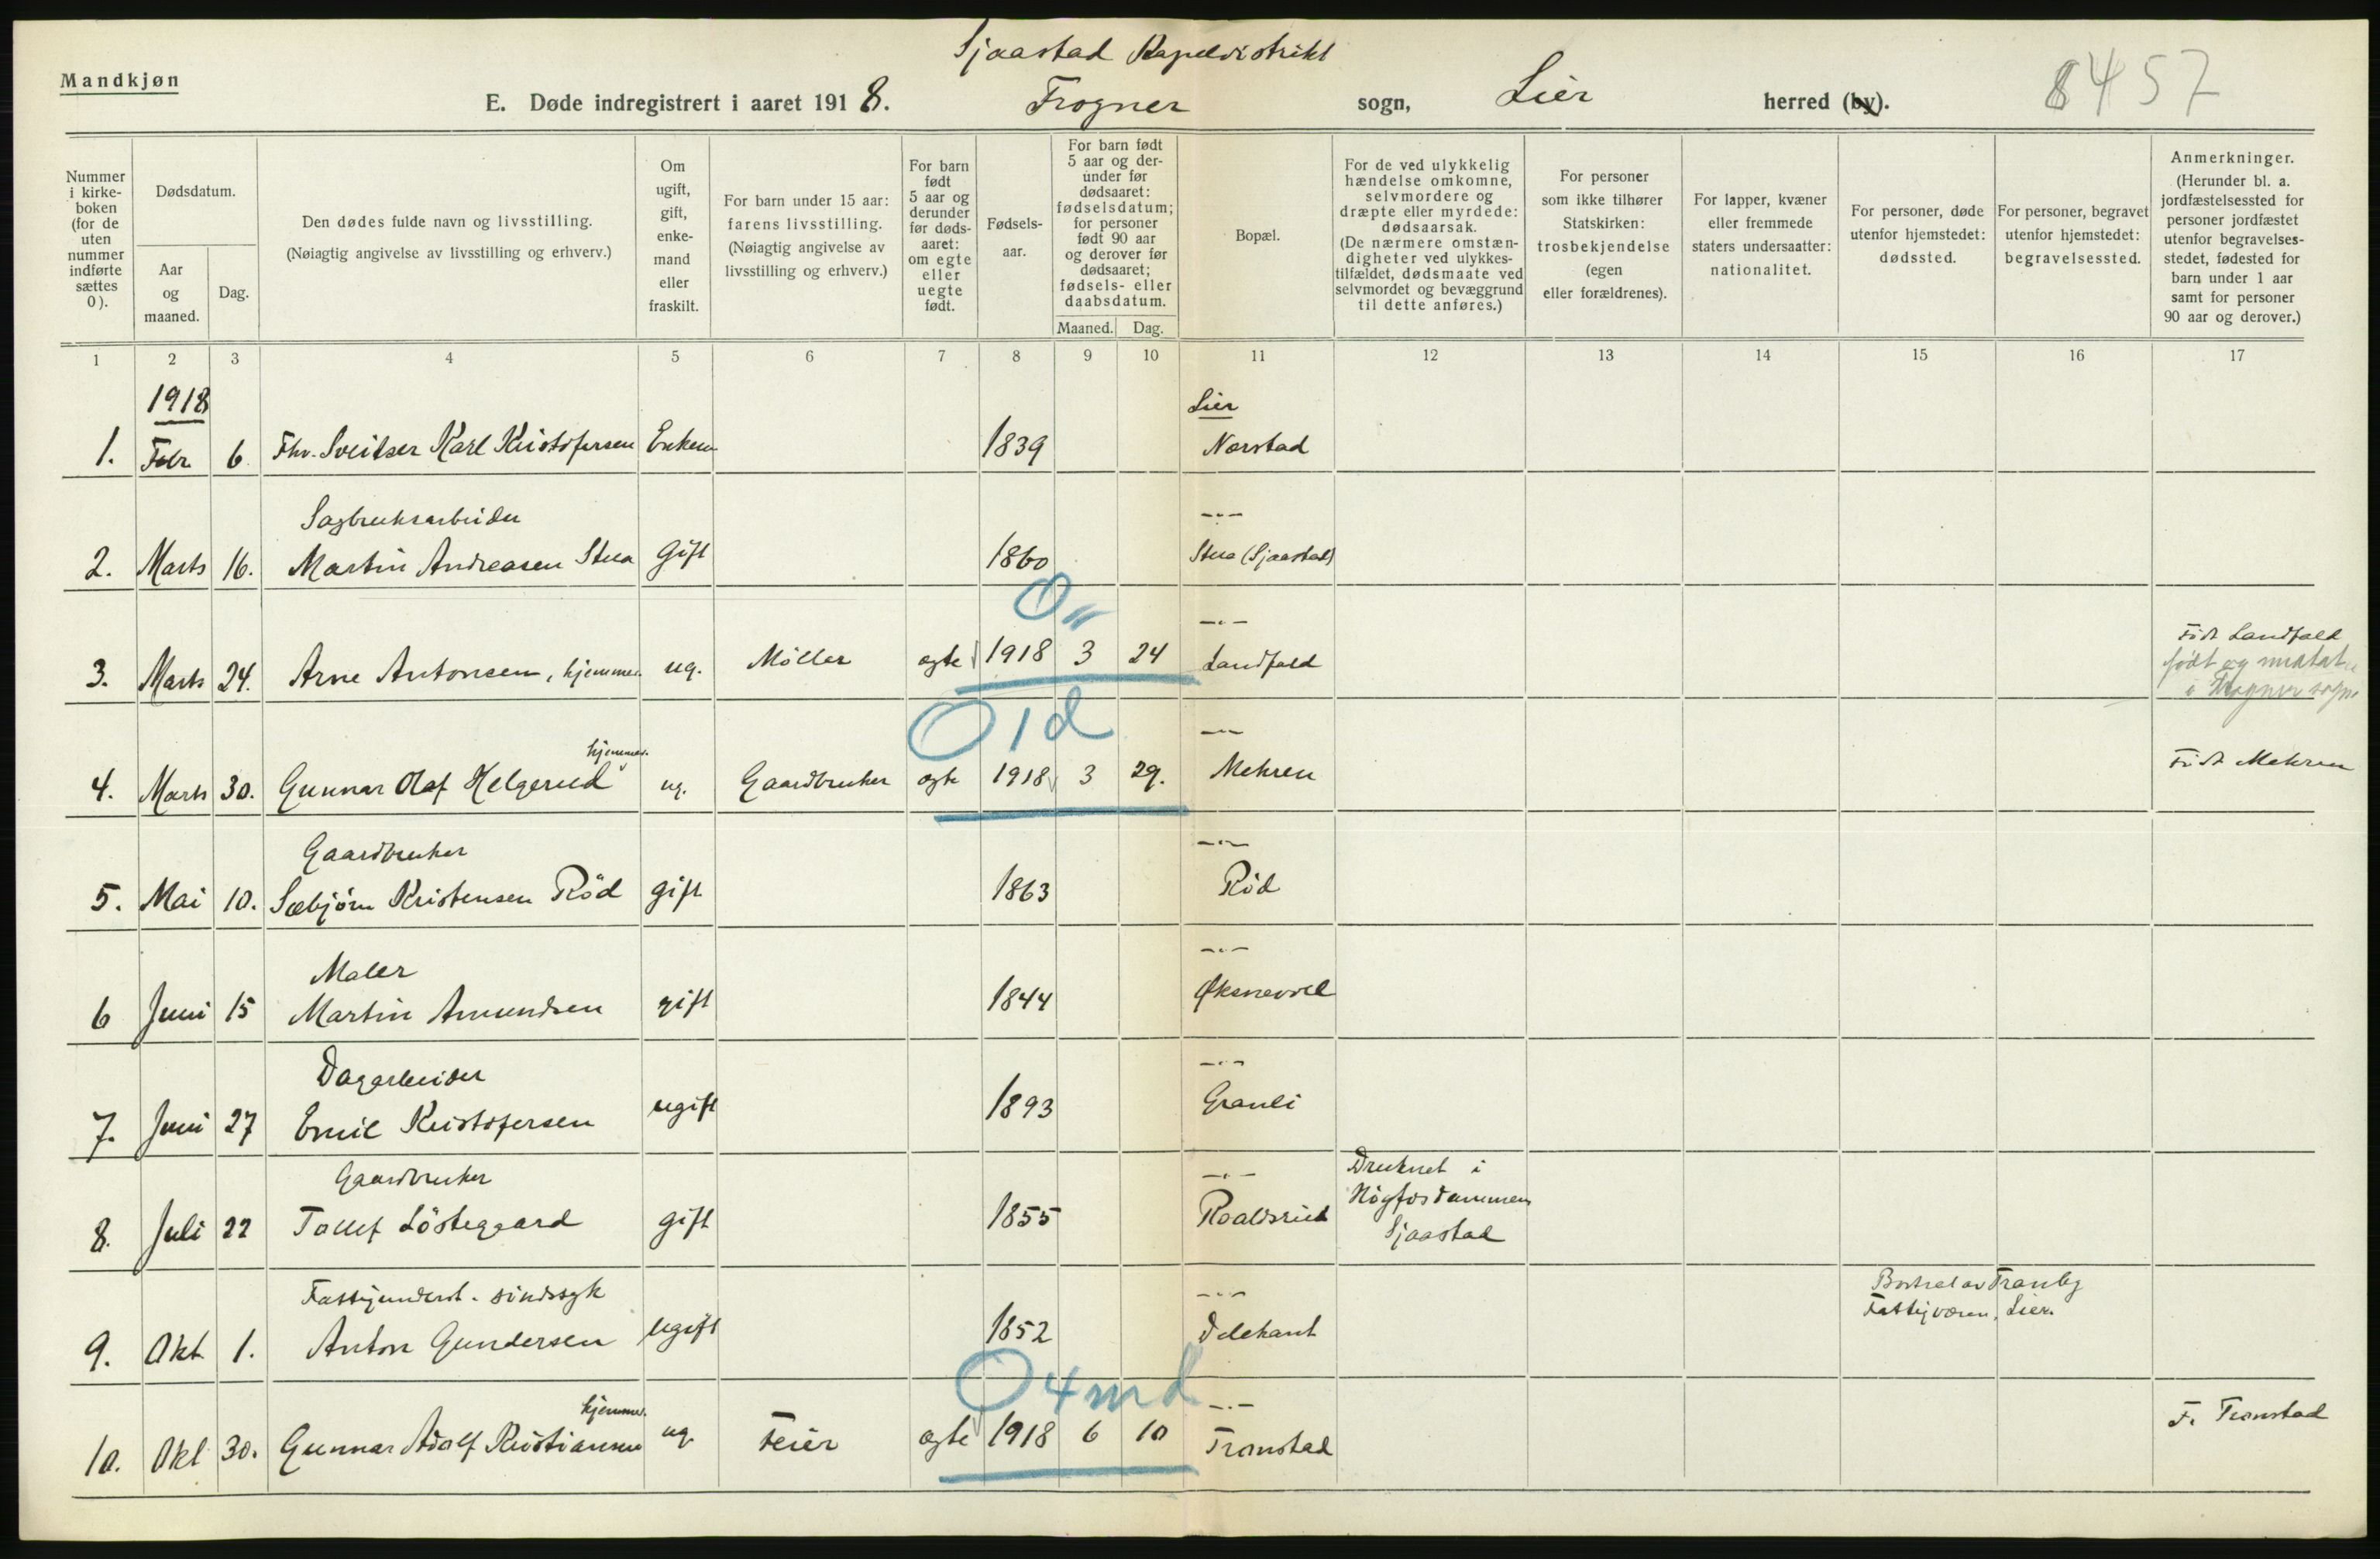 Sjaastad Kapeldistrikt
Mandkjøn
E. Døde indregistrert i aaret 1918. Frogner sogn, Lier herred (by).
8457
Nummer i kirke-boken (for de uten nummer indførte sættes 0).
Dødsdatum.
Aar og maaned.
Dag.
Den dødes fulde navn og livsstilling.
(Nøiagtig angivelse av livsstilling og erhverv.)
Om ugift, gift, enke-mand eller fraskilt.
For barn under 15 aar: farens livsstilling.
(Nøiagtig angivelse av livsstilling og erhverv.)
For barn født 5 aar og derunder før døds-aaret: om egte eller uegte født.
Fødsels-aar.
For barn født 5 aar og der-under før dødsaaret: fødselsdatum; for personer født 90 aar og derover før dødsaaret; fødsels- eller daabsdatum.
Maaned. Dag.
Bopæl.
For de ved ulykkelig hændelse omkomne, selvmordere og dræpte eller myrdede: dødsaarsak.
(De nærmere omstæn-digheter ved ulykkes-tilfældet, dødsmaate ved selvmordet og bevæggrund til dette anføres.)
For personer som ikke tilhører Statskirken: trosbekjendelse (egen eller forældrenes).
For lapper, kvæner eller fremmede staters undersaatter: nationalitet.
For personer, døde utenfor hjemstedet: dødssted.
For personer, begravet utenfor hjemstedet: begravelsessted.
Anmerkninger.
(Herunder bl. a. jordfæstelsessted for personer jordfæstet utenfor begravelses-stedet, fødested for barn under 1 aar samt for personer 90 aar og derover.)
1 2 3 4 5 6 7 8 9 10 11 12 13 14 15 16 17
1918
Lier
1. Febr. 6 Fhv. Sveitser Karl Kristofersen Enkem 1839 Norstad
Sagbruksarbeider -"-
2. Marts 16. Martin Andreasen Stua Gift 1860 Stua (Sjaastad)
0 " -"- Født Landfald
3. Marts 24. Arne Antonsen, hjemmev. ug. Møller egte 1918 3 24 Landfald
født og
i Frogner sogn
0 1 d
hjemmev. -"-
4. Marts 30. Gunnar Olaf Helgerud ug. Gaardbruker egte 1918 3 29. Mehren Født Mehren
Gaardbruker -"-
5. Mai 10. Sæbjørn Kristensen Röd gift 1863 Röd
Maler -"-
6 Juni 15 Martin Amundsen gift 1844 Øksnevad
Dagarbeider -"-
7. Juni 27 Emil Kristofersen ugift 1893 Granli
Gaardbruker -"- Druknet i
8. Juli 22 Tollef Löstegaard gift 1855 Roaldsrud Högfosdammen
Sjaastad
Fattigunderst. sindssyk -"- Bortsat av Tranby
9. Okt. 1. Anton Gundersen ugift 1852 Fattigvæsen, Lier.
0 4 md
hjemmev. -"- F. Tronstad
10. Okt 30. Gunnar Adolf Kristiansen ug. Feier egte 1918 6 10 Tronstad